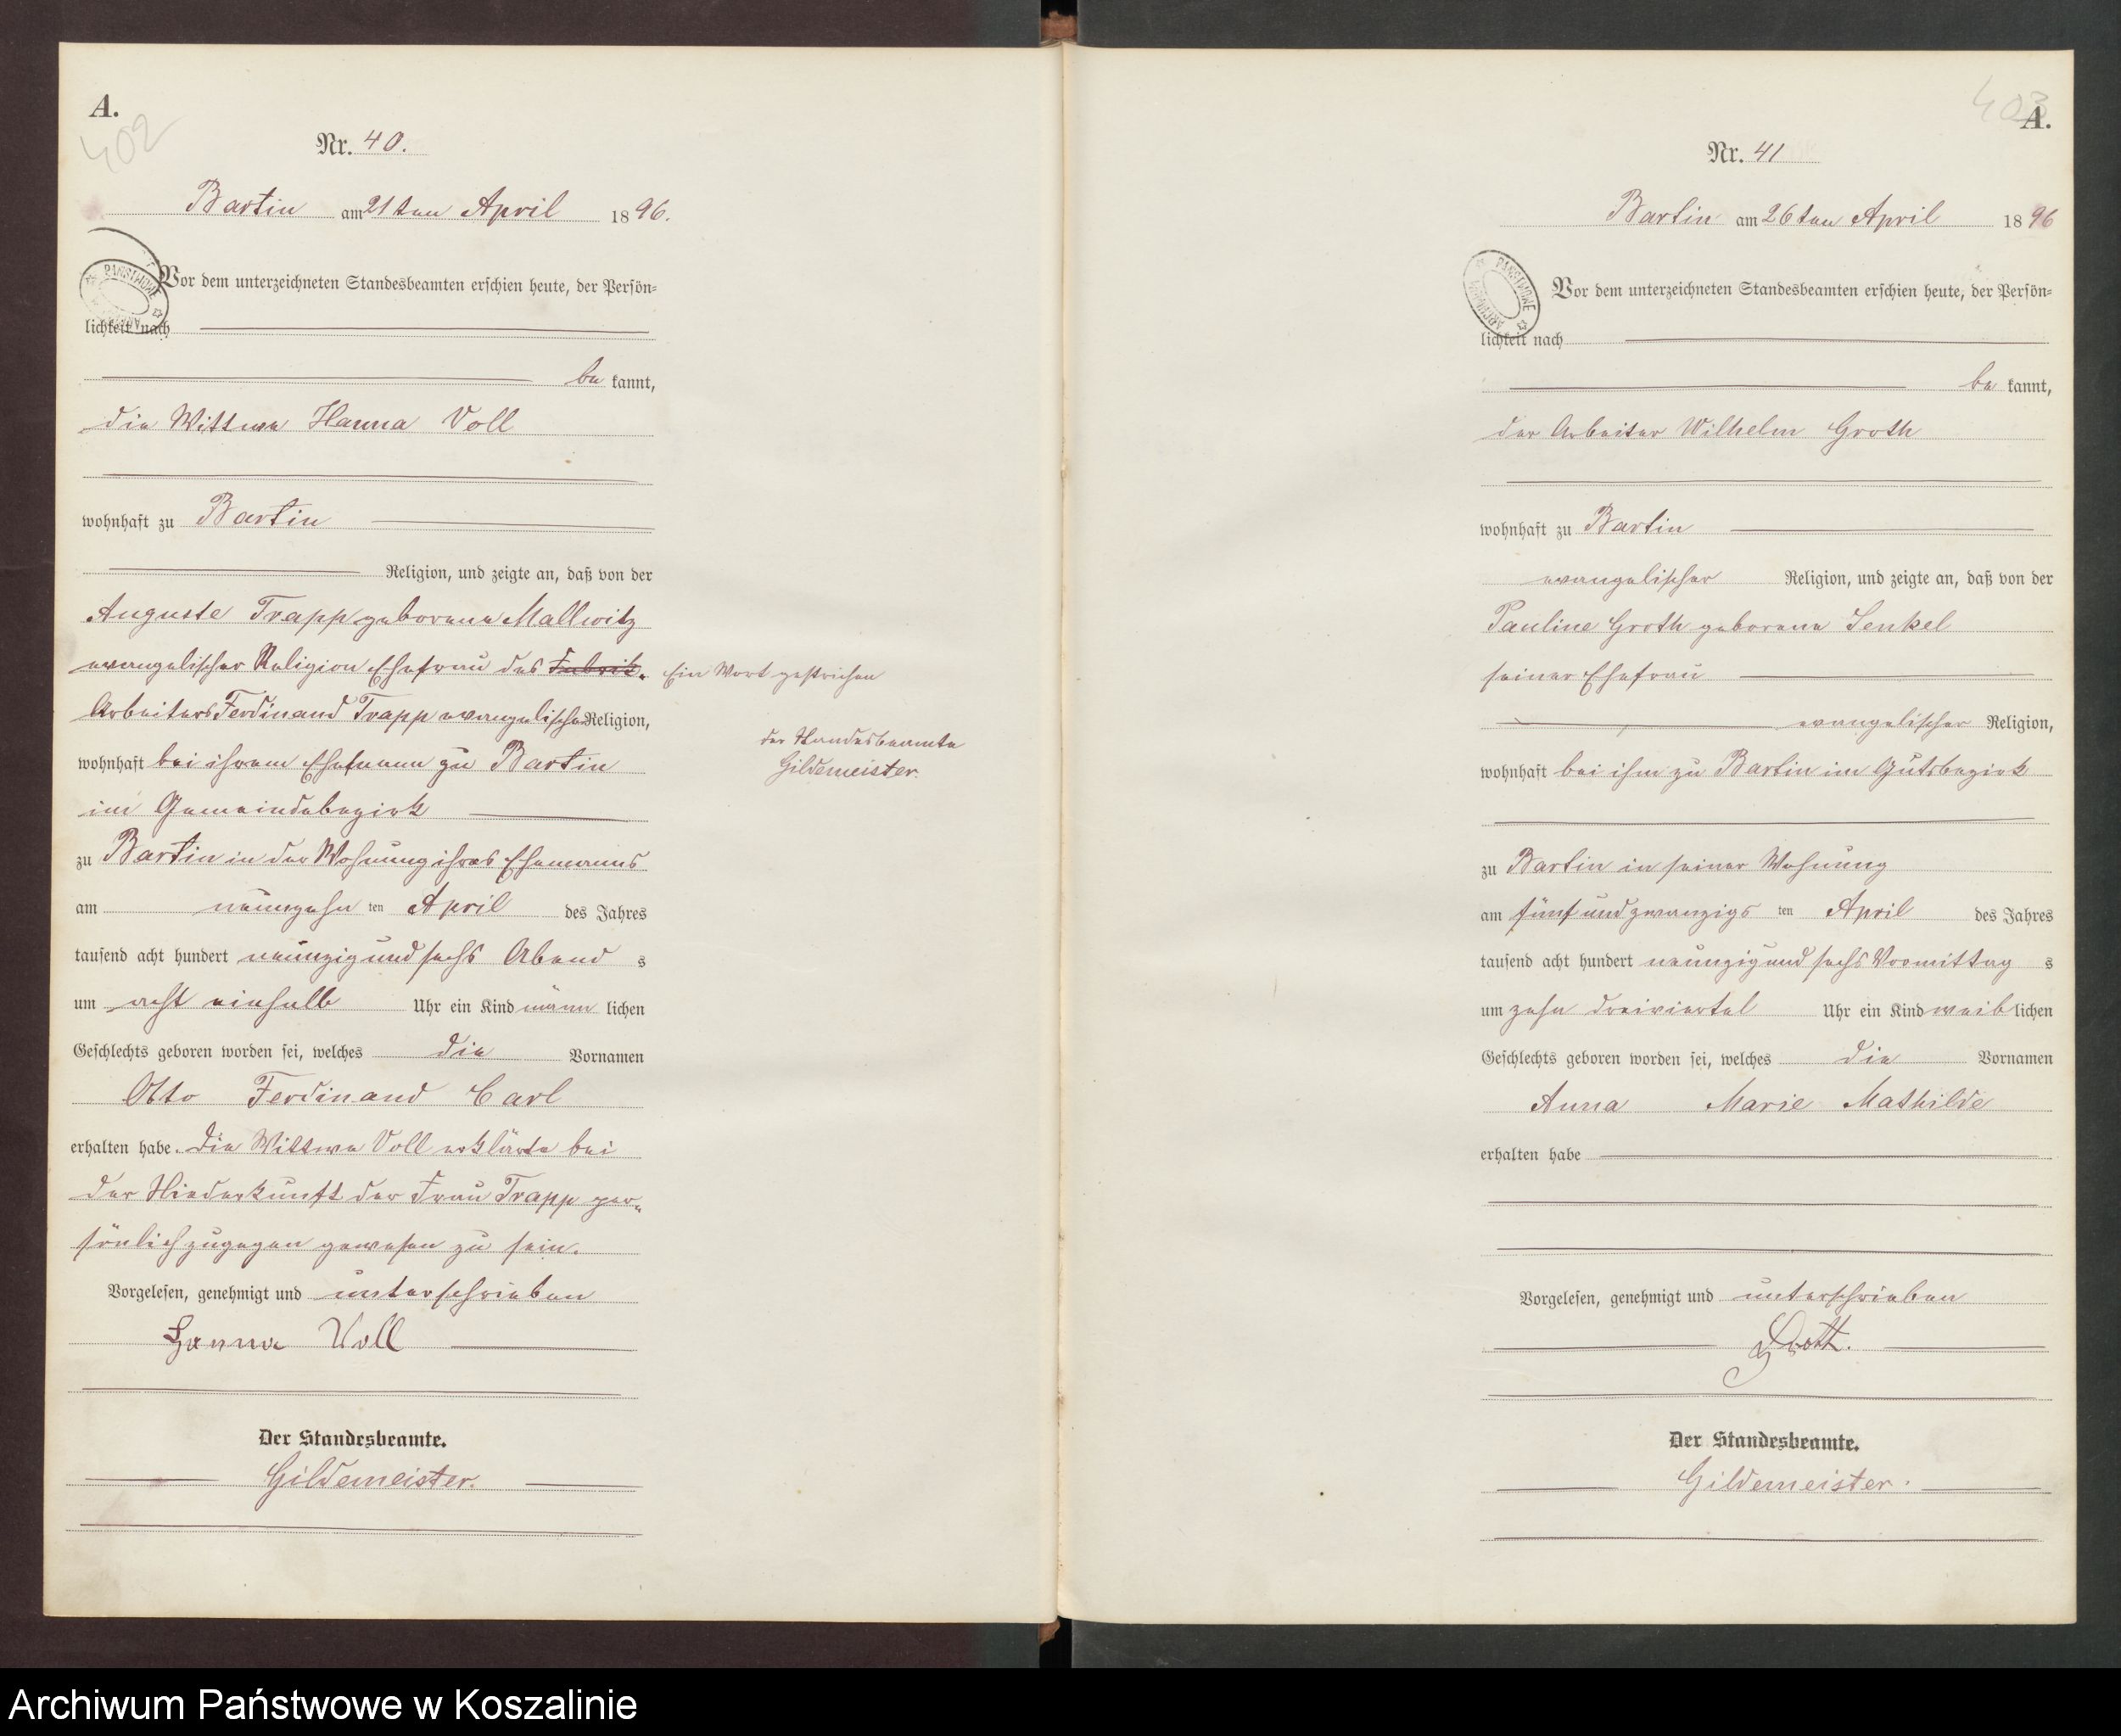 A.
402
Nr. 40.
Bartin am 21ten April 1896.
Vor dem unterzeichneten Standesbeamten erschien heute, der Persön=
lichkeit nach
be kannt,
die Wittwe Hanna Voll
wohnhaft zu Bartin
Religion, und zeigte an, daß von der
Auguste Trapp geborene Mallwitz
evangelischer Religion Ehefrau des Fabrik-
Arbeiters Ferdinand Trapp evangelischer Religion,
wohnhaft bei ihrem Ehemann zu Bartin
im Gemeindebezirk
zu Bartin in der Wohnung ihres Ehemanns
am neunzehn ten April des Jahres
tausend acht hundert neunzig und sechs Abend s
um acht einhalb Uhr ein Kind männ lichen
Geschlechts geboren worden sei, welches die Vornamen
Otto Ferdinand Carl
erhalten habe. Die Wittwe Voll erklärte bei
der Niederkunft der Frau Trapp per„
sönlich zugegen gewesen zu sein.
Vorgelesen, genehmigt und unterschrieben
Hanna Voll
Der Standesbeamte.
Gildemeister.
Ein Wort gestrichen
der Standesbeamte
Gildemeister.
403
A.
Nr. 41
Bartin am 26ten April 1896
Vor dem unterzeichneten Standesbeamten erschien heute, der Persön=
lichkeit nach
be kannt,
der Arbeiter Wilhelm Groth
wohnhaft zu Bartin
evangelischer Religion, und zeigte an, daß von der
Pauline Groth geborene Senkel
seiner Ehefrau
evangelischer Religion,
wohnhaft bei ihm zu Bartin im Gutsbezirk
zu Bartin in seiner Wohnung
am fünf und zwanzigs ten April des Jahres
tausend acht hundert neunzig und sechs Vormittag s
um zehn dreiviertel Uhr ein Kind weib lichen
Geschlechts geboren worden sei, welches die Vornamen
Anna Marie Mathilde
erhalten habe
Vorgelesen, genehmigt und unterschrieben
Groth.
Der Standesbeamte.
Gildemeister.
Archiwum Państwowe w Koszalinie